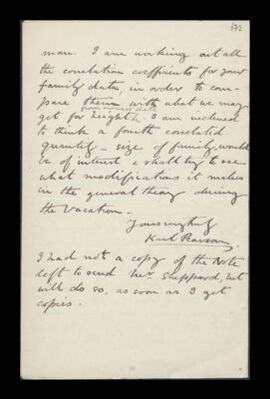 172
man. I am working out all
the correlation coefficients for your
family data, in order to com-
pare them with what we may
from our own data
get for height. I am inclined
to think a fourth correlated
quantity – size of family, would
be of interest & shall try to see
what modifications it makes
in the general theory during
the Vacation –
Yours very truly
Karl Pearson
I had not a copy of the Note
left to send Mr. Sheppard, but
will do so, as soon as I get
copies.